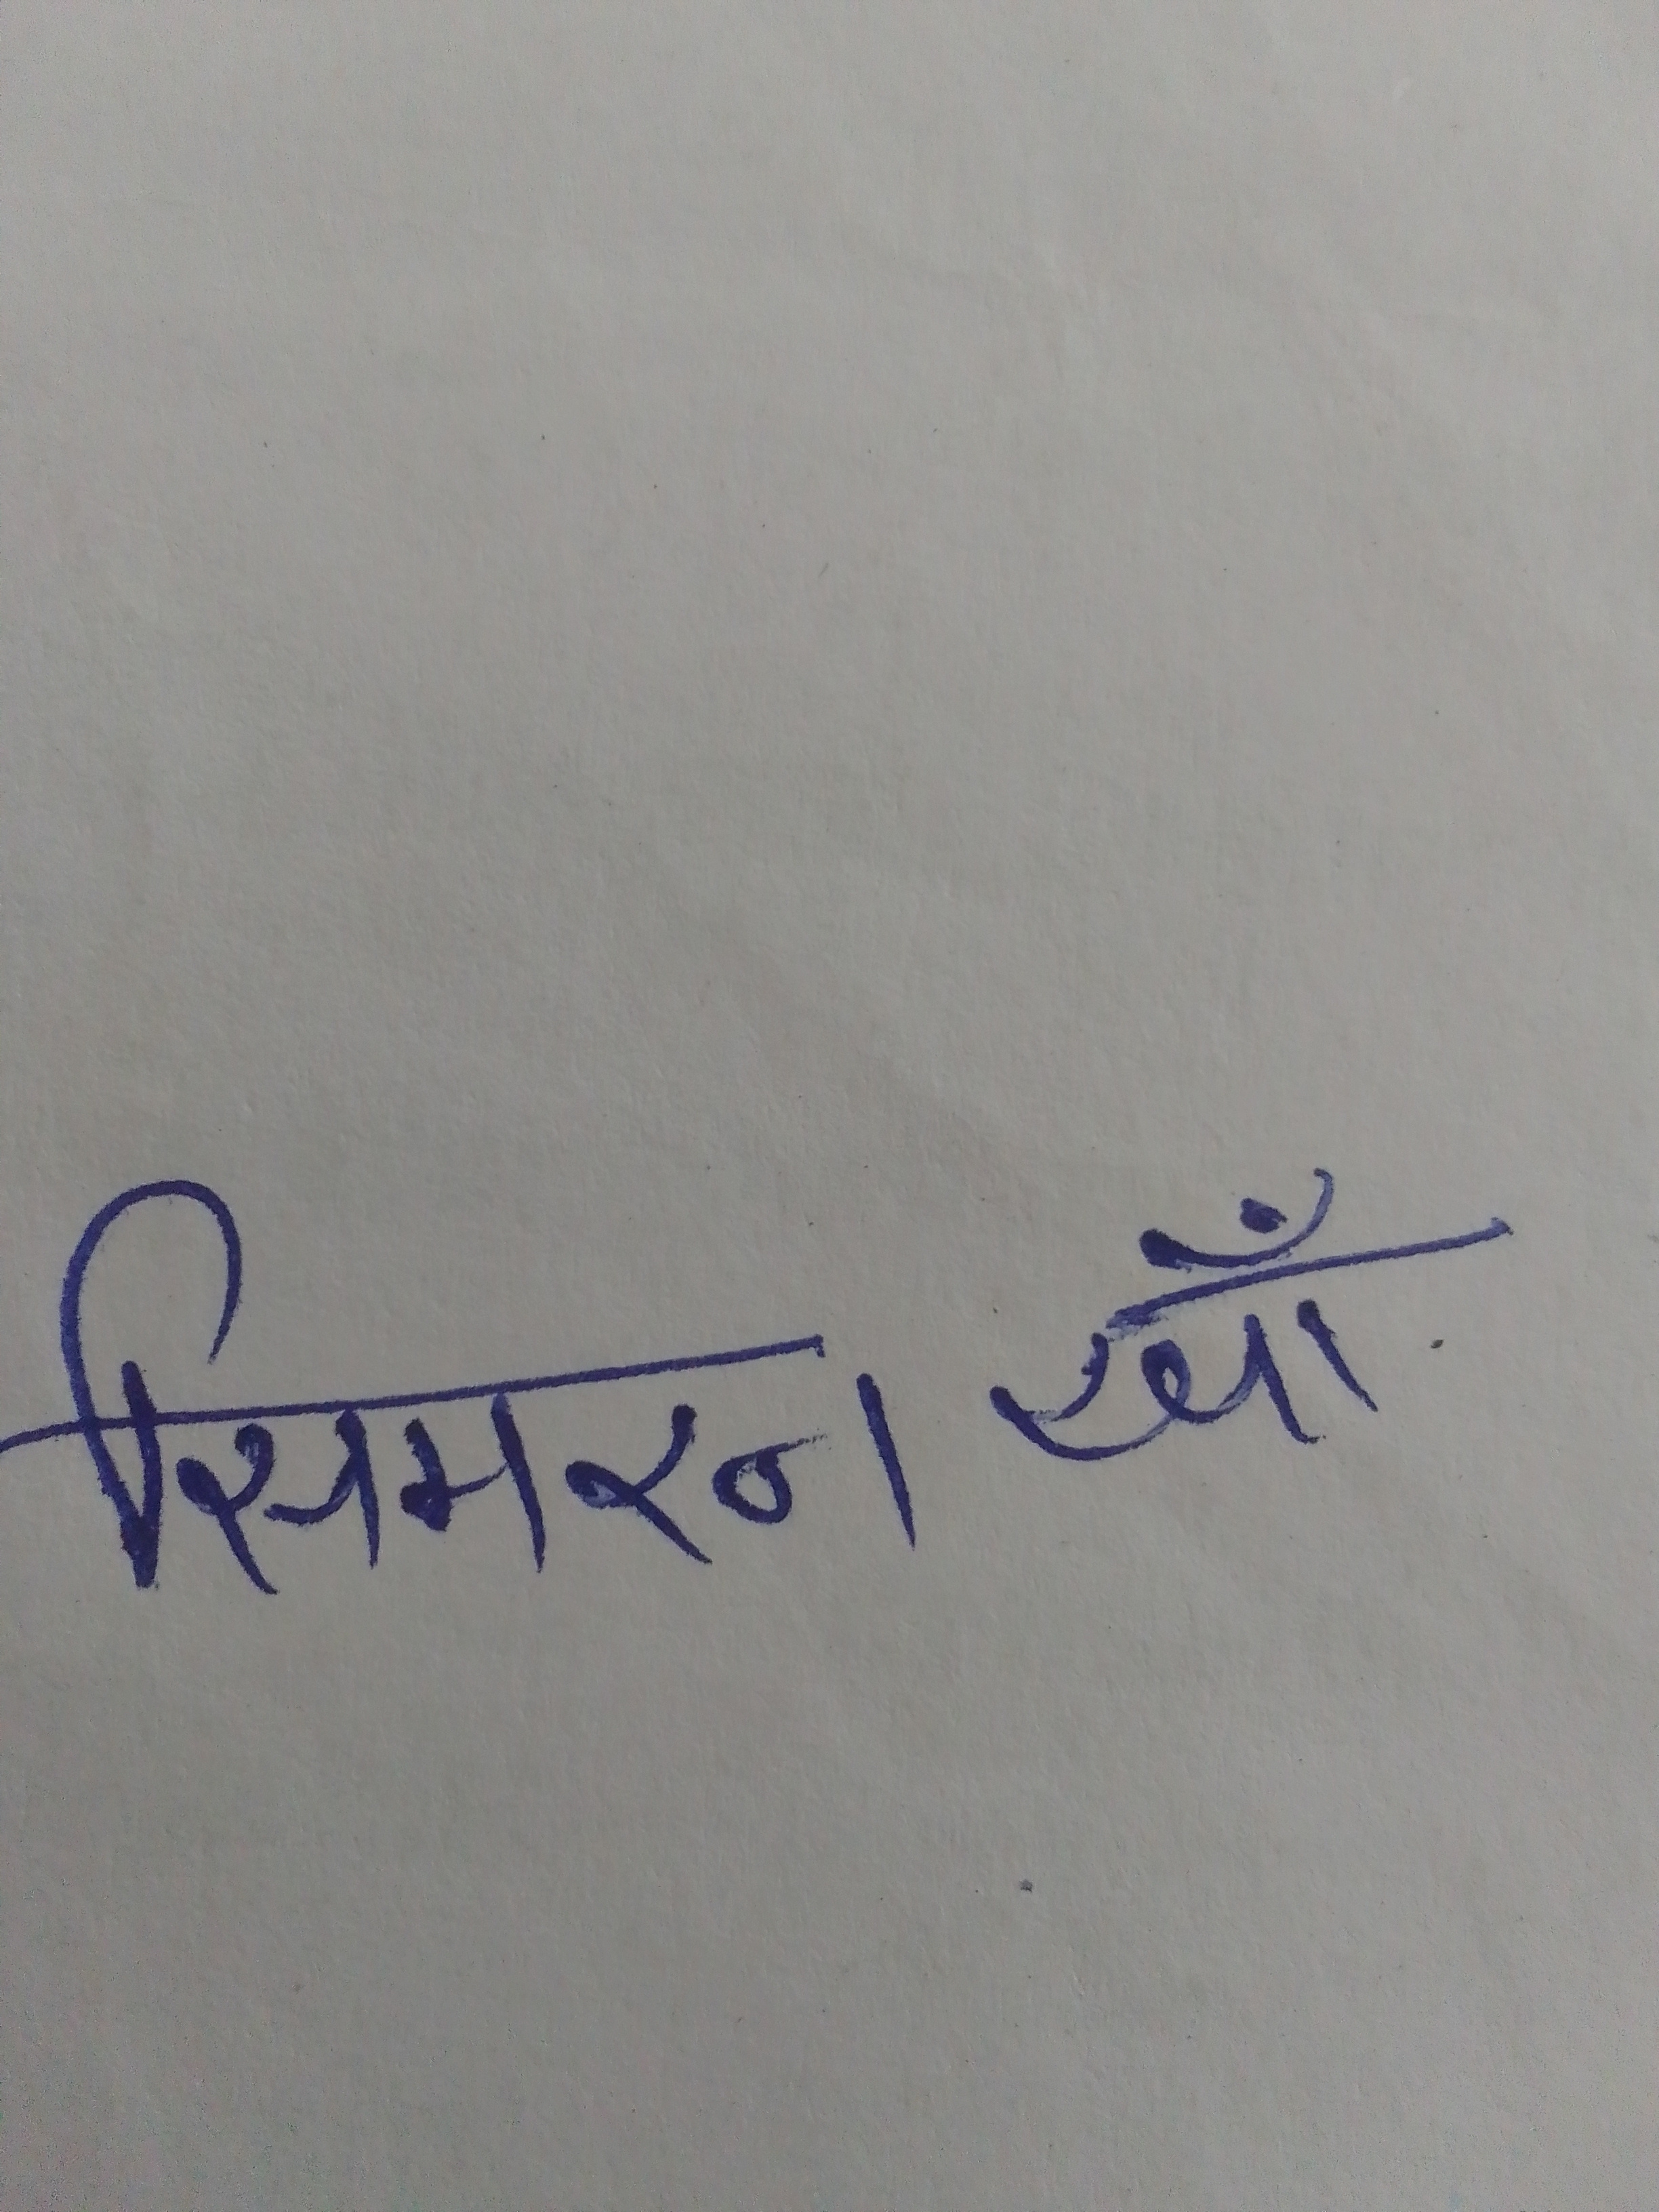 सिमरन खाँ